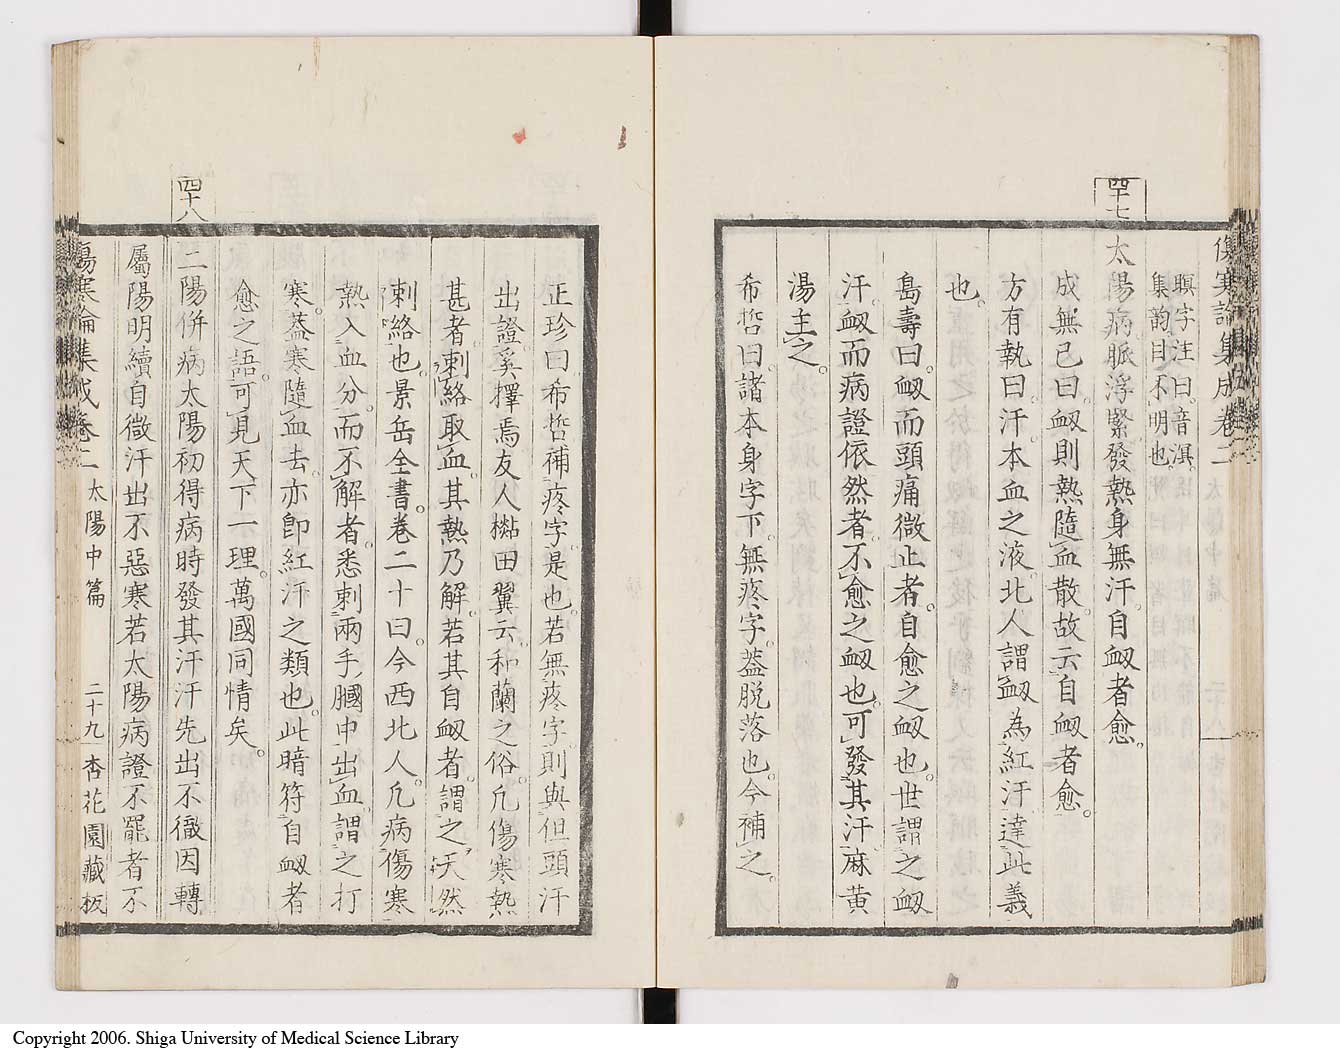 四十七
傷寒論集成卷二
瞑字注曰音溟
集韵目不明也
太陽病脈浮緊發熱身無汗自衂者愈
成無己曰衂則熱隨血散故云自衂者愈
方有執曰汗本血之液北人謂衂為紅汗達此義
也
島壽曰衂而頭痛微止者自愈之衂也世謂之衂
汗衂而病證依然者不愈之衂也可發其汗麻黃
湯主之
希哲曰諸本身字下無疼字蓋脱落也今補之
正珍曰希哲補疼字是也若無疼字則與但頭汗
出證奚擇焉友人田翼云和蘭之俗凡傷寒熱
甚者刺絡取血其熱乃解若其自衂者謂之天然
刺絡也景岳全書卷二十曰今西北人凡病傷寒
熱入血分而不解者悉刺兩手膕中出血謂之打
寒蓋寒隨血去亦即紅汗之類也此暗符自衂者
愈之語可見天下一理萬國同情矣
四十八
二陽併病太陽初得病時發其汗汗先出不徹因轉
屬陽明續自微汗出不惡寒若太陽病證不罷者不
傷寒論集成卷二 太陽中篇 二十九 杏花園藏板
Copyright 2006. Shiga University of Medical Science Library